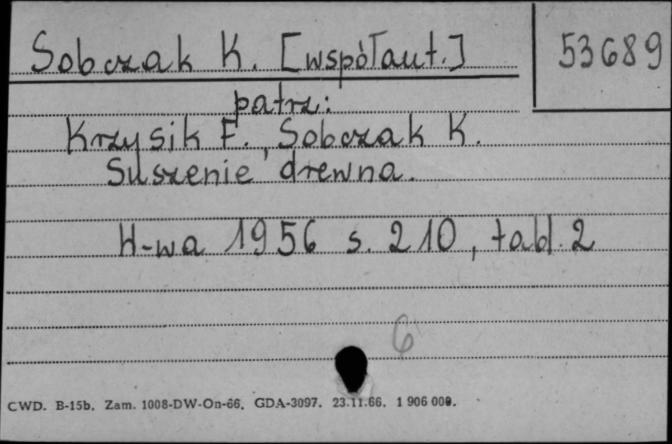 Sobczak K. [współaut.]
53689
patrz:
Krzysik F., Sobczak K.
Suszenie drewna.
W-wa 1956 s. 210, tabl. 2
6
CWD. B-15b. Zam. 1008-DW-On-66. GDA-3097. 23.11.66. 1 906 000.